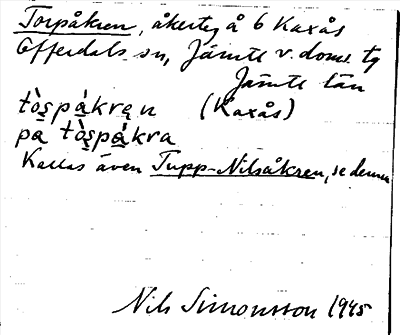 Torpåkren, åkerteg å 6 Kaxås
Offerdals sn, Jämtl v. doms. tg
Jämtl län
tò̀spákrẹn (Kaxås)
på tò̀spákra
Kallas även Tupp-Nilsåkren, se denna
Nils Simonsson 1945